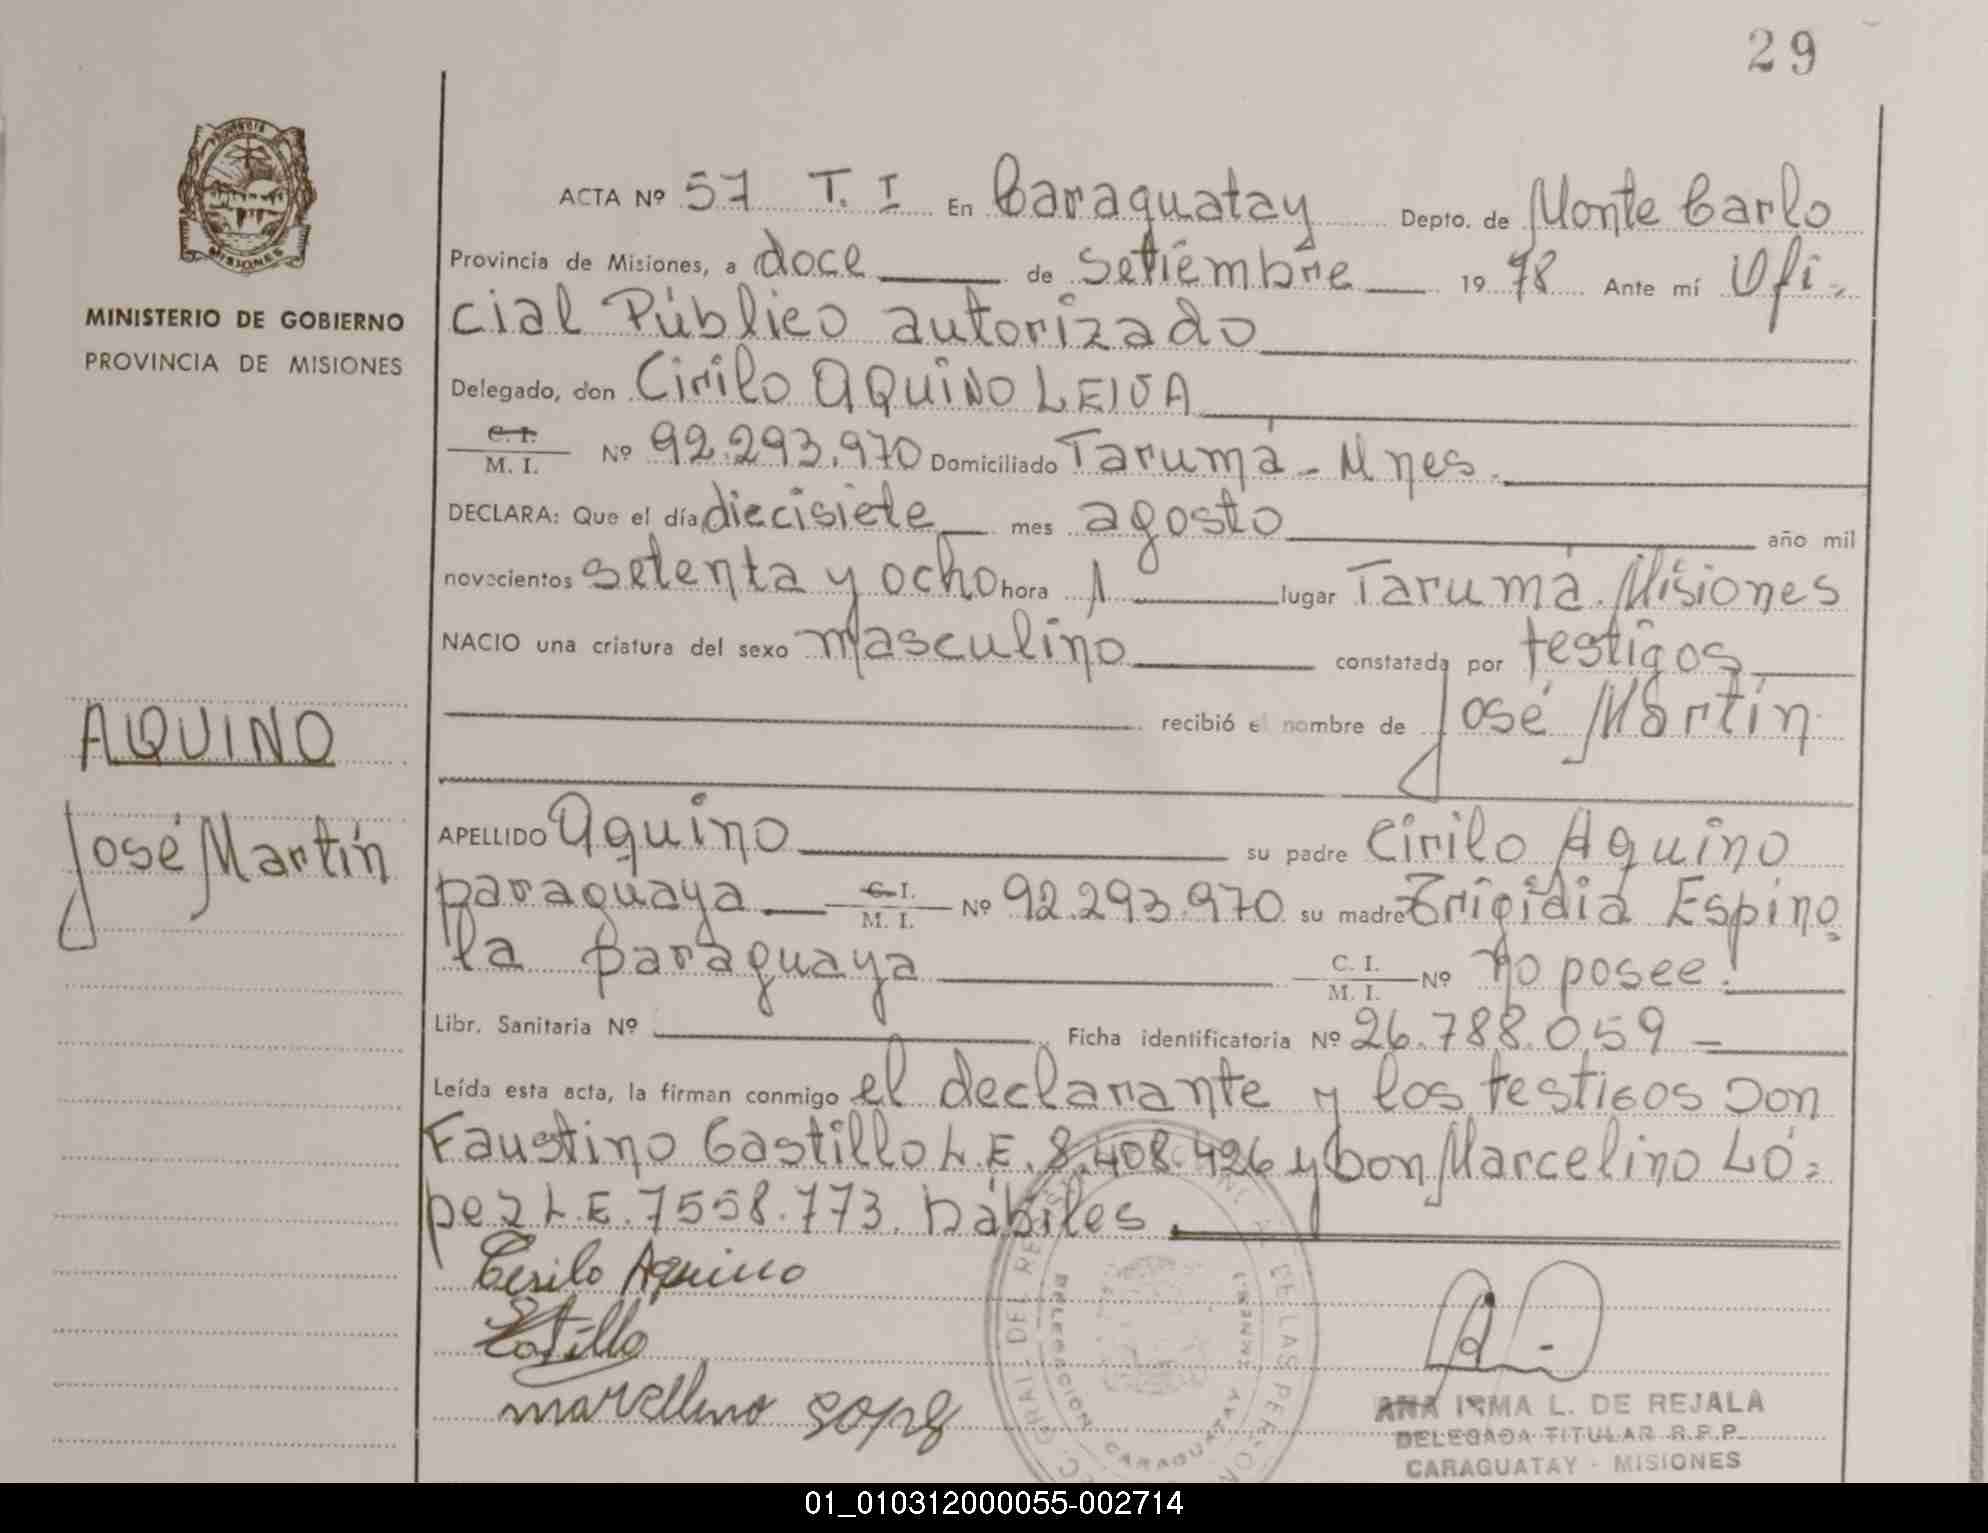 29
MISIONES
MINISTERIO DE GOBIERNO
PROVINCIA DE MISIONES
ACTA Nº 57 T. I En Caraguatay Depto. de Monte Carlo
Provincia de Misiones, a doce de Setiembre 1978 Ante mí Ofi-
cial Público autorizado
Delegado, don Cirilo AQUINO LEIVA
C. I.
M. I. Nº 92.293.970 Domiciliado Tarumá - Mnes.
DECLARA: Que el día diecisiete mes agosto año mil
novecientos setenta y ocho hora 1 lugar Tarumá. Misiones
NACIO una criatura del sexo masculino constatada por testigos
recibió el nombre de José Martín
AQUINO
José Martín
APELLIDO Aquino su padre Cirilo Aquino
paraguaya C. I. M. I. Nº 92.293.970 su madre Brigidia Espino
la paraguaya C. I. M. I. Nº no posee.
Libr. Sanitaria Nº Ficha identificatoria Nº 26.788.059 -
Leída esta acta, la firman conmigo el declarante y los testigos Don
Faustino Castillo L.E. 8.408.426 y Don Marcelino Ló=
pez L.E. 7558.773. hábiles
Cerilo Aquino
Castillo
marcelino Lopez
DELEGACION CARAGUATAY
ANA IRMA L. DE REJALA
DELEGADA TITULAR R.P.P.
CARAGUATAY - MISIONES
01_010312000055-002714